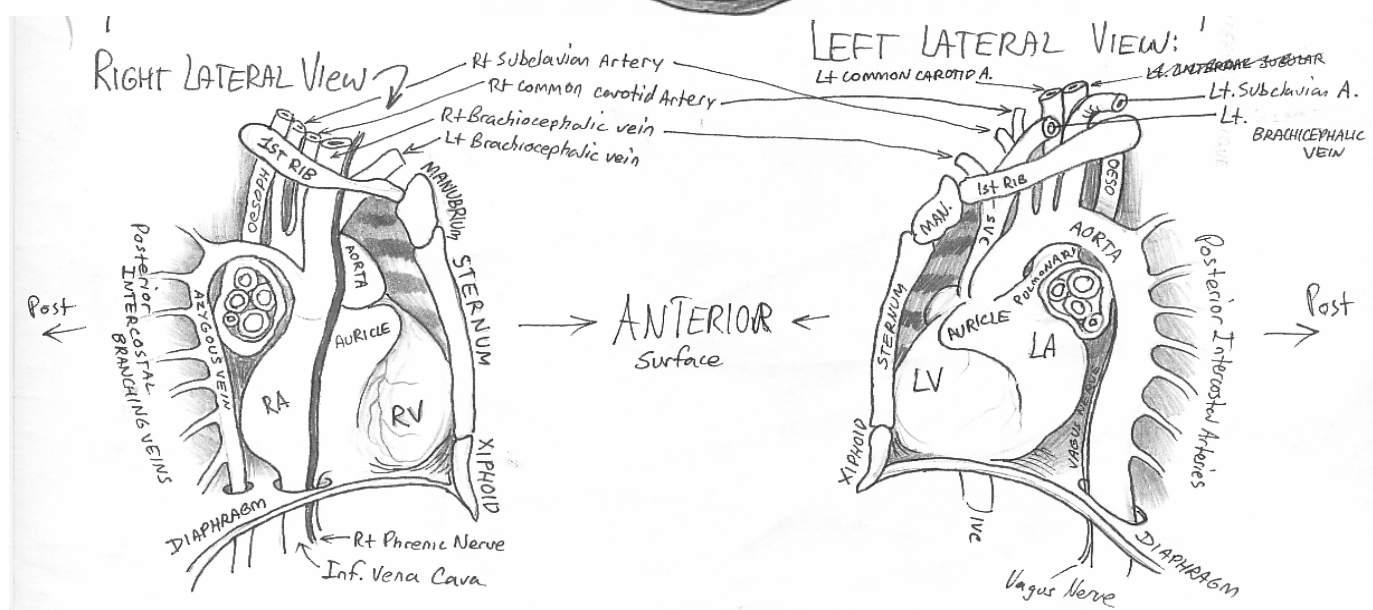 RIGHT LATERAL VIEW
Rt Subclavian Artery
Rt Common carotid Artery
Rt Brachiocephalic vein
Lt Brachiocephalic vein
1st RIB
OESOPH
MANUBRIUM
STERNUM
XIPHOID
AORTA
AURICLE
RA
RV
AZYGOUS VEIN
Posterior
INTERCOSTAL
BRANCHING VEINS
Post
DIAPHRAGM
Rt Phrenic Nerve
Inf. Vena Cava
ANTERIOR
Surface
LEFT LATERAL VIEW:
Lt COMMON CAROTID A.
Lt. Subclavian A.
Lt.
BRACHICEPHALIC
VEIN
1st RIB
OESO
MAN.
SVC
AORTA
PULMONARY
STERNUM
AURICLE
LA
LV
VAGUS NERVE
XIPHOID
IVC
Posterior Intercostal Arteries
Post
DIAPHRAGM
Vagus Nerve